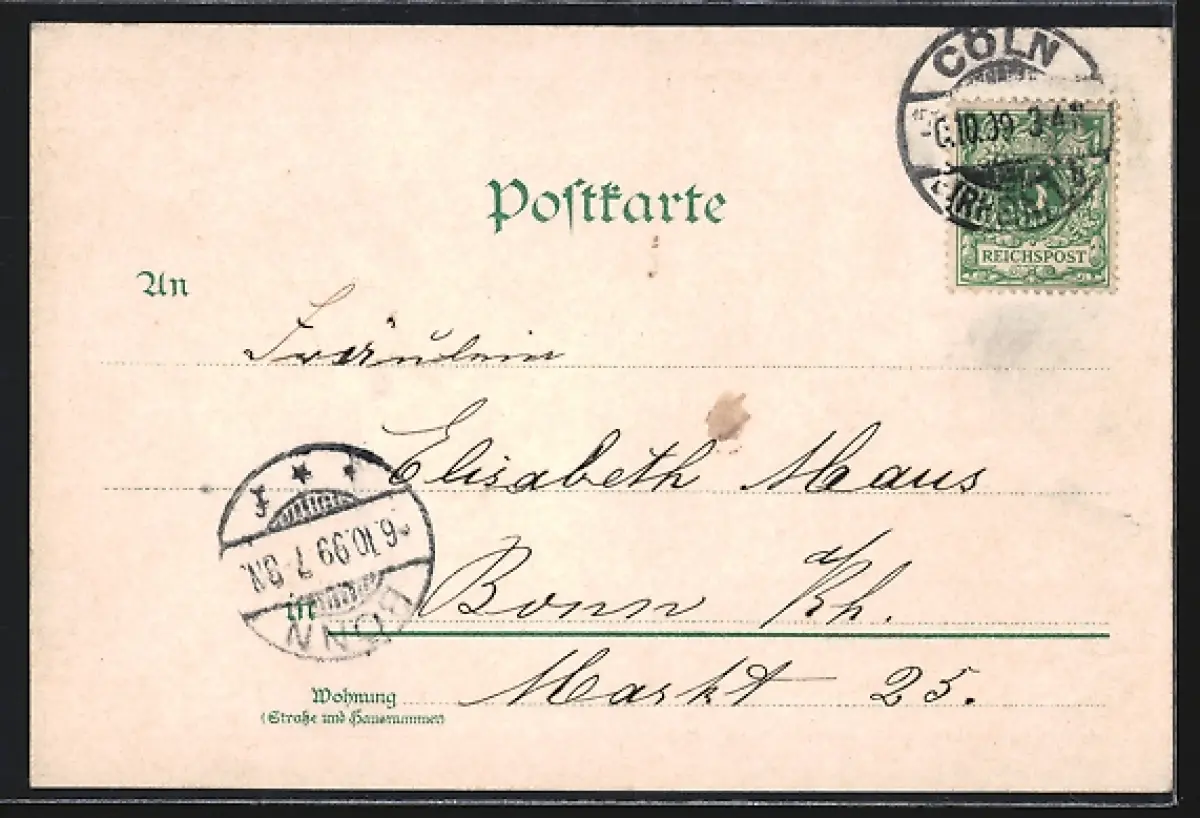 CÖLN
6.10.99 3-4N
(RHEIN)
REICHSPOST
Postkarte
An
Fräulein
Elisabeth Maus
6.10.99 7-8N.
in Bonn a/Rh.
BONN
Markt 25.
Wohnung
(Straße und Hausnummer)